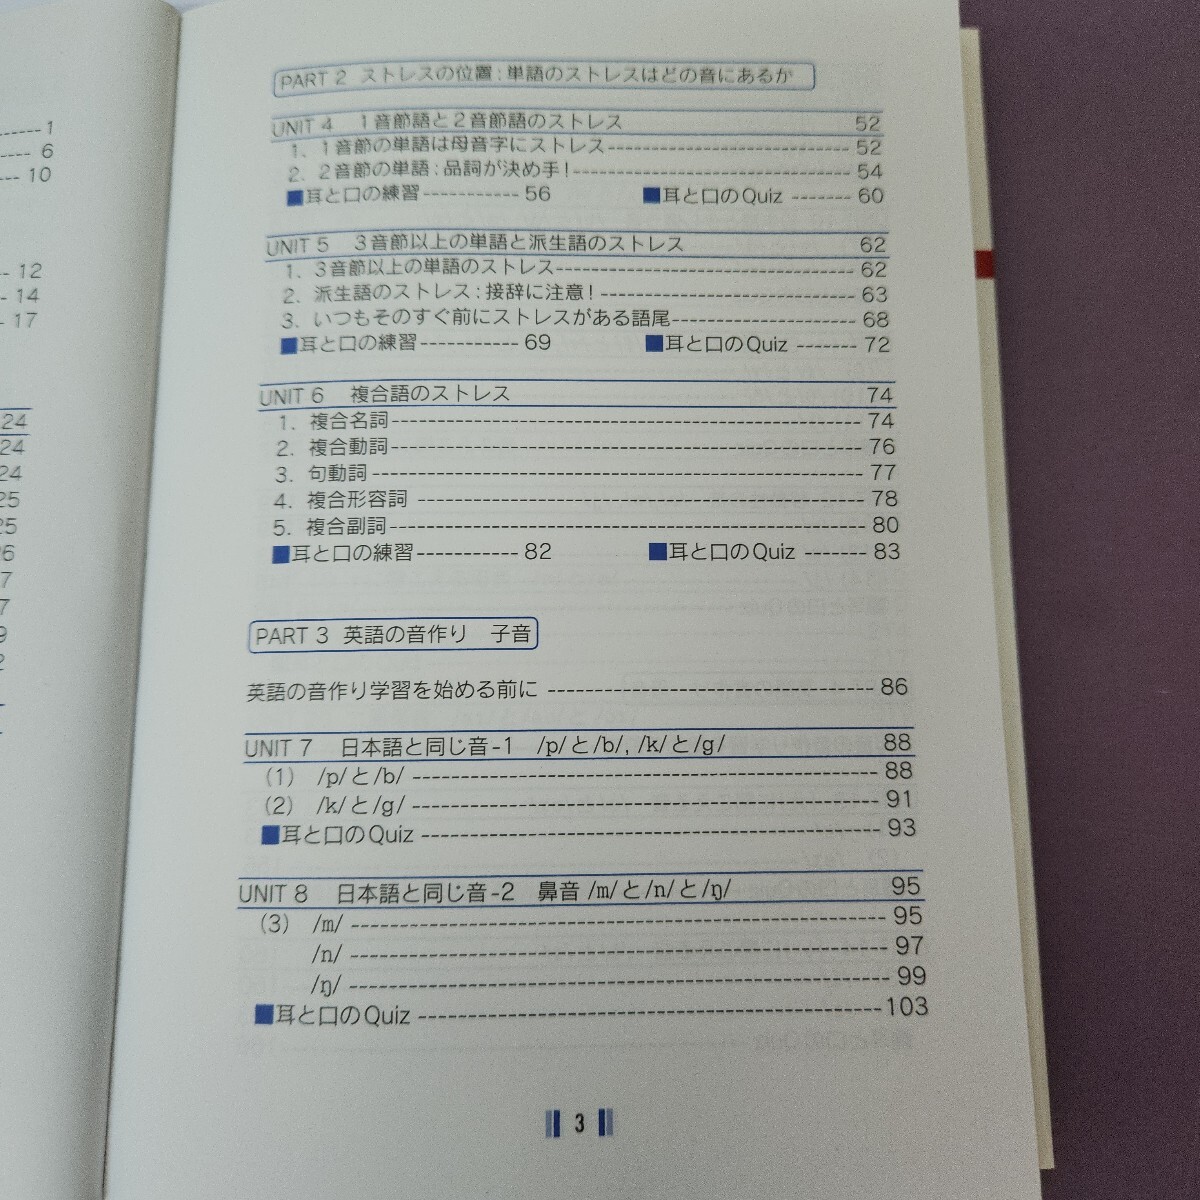 1
6
10
12
14
17
24
24
24
25
25
26
7
7
9
2
PART 2 ストレスの位置:単語のストレスはどの音にあるか
UNIT 4 1音節語と2音節語のストレス 52
1. 1音節の単語は母音字にストレス 52
2. 2音節の単語:品詞が決め手! 54
■耳と口の練習 56 ■耳と口のQuiz 60
UNIT 5 3音節以上の単語と派生語のストレス 62
1. 3音節以上の単語のストレス 62
2. 派生語のストレス:接辞に注意! 63
3. いつもそのすぐ前にストレスがある語尾 68
■耳と口の練習 69 ■耳と口のQuiz 72
UNIT 6 複合語のストレス 74
1. 複合名詞 74
2. 複合動詞 76
3. 句動詞 77
4. 複合形容詞 78
5. 複合副詞 80
■耳と口の練習 82 ■耳と口のQuiz 83
PART 3 英語の音作り 子音
英語の音作り学習を始める前に 86
UNIT 7 日本語と同じ音-1 /p/と/b/, /k/と/g/ 88
(1) /p/と/b/ 88
(2) /k/と/g/ 91
■耳と口のQuiz 93
UNIT 8 日本語と同じ音-2 鼻音 /m/と/n/と/ŋ/ 95
(3) /m/ 95
/n/ 97
/ŋ/ 99
■耳と口のQuiz 103
3